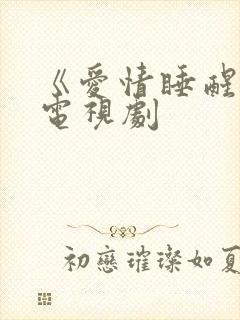 《愛情睡醒
電視劇
初戀璀璨如夏